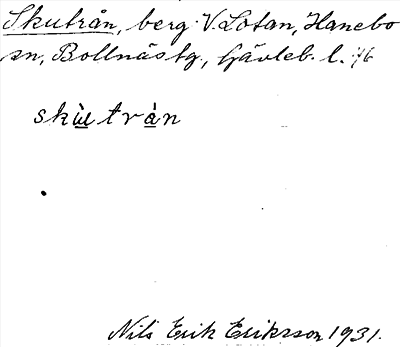 Skutrån, berg V. Lotan, Hanebo
sn, Bollnäs tg, Gävleb. l. 76
skùtrán
Nils Erik Eriksson 1931.